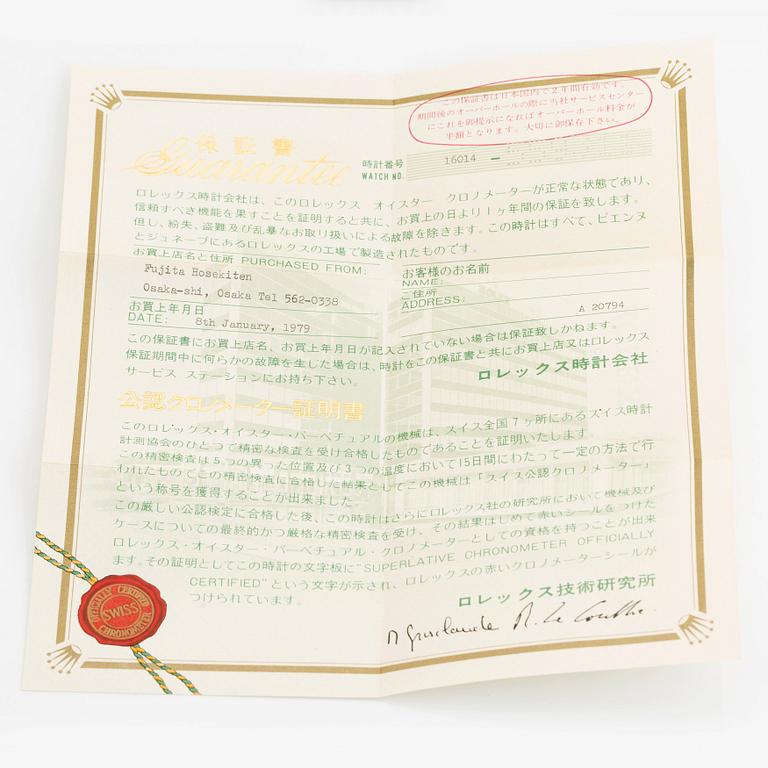 この保証書は日本国内で2年間有効です。
期間後のオーバーホールの際に当社サービスセンター
にこれを御提示になればオーバーホール料金が
半額となります。大切に御保存下さい。
保証書
Guarantee
時計番号
WATCH NO.
16014 —
ロレックス時計会社は、このロレックス オイスター クロノメーターが正常な状態であり、
信頼すべき機能を果すことを証明すると共に、お買上の日より1ヶ年間の保証を致します。
但し、紛失、盗難及び乱暴なお取り扱いによる故障を除きます。この時計はすべて、ビエンヌ
とジュネーブにあるロレックスの工場で製造されたものです。
お買上店名と住所 PURCHASED FROM:
Fujita Hosekiten
Osaka-shi, Osaka Tel 562-0338
お客様のお名前
NAME:
ご住所
ADDRESS:
A 20794
お買上年月日
DATE: 8th January, 1979
この保証書にお買上店名、お買上年月日が記入されていない場合は保証致しかねます。
保証期間中に何らかの故障を生じた場合は、時計をこの保証書と共にお買上店又はロレックス
サービス ステーションにお持ち下さい。
ロレックス時計会社
公認クロノメーター証明書
このロレックス・オイスター・パーペチュアルの機械は、スイス全国7ヶ所にあるスイス時計
計測協会のひとつで精密な検査を受け合格したものであることを証明いたします
この精密検査は5つの異った位置及び3つの温度において15日間にわたって一定の方法で行
われたものでこの精密検査に合格した結果としてこの機械は「スイス公認クロノメーター」
という称号を獲得することが出来ました
この厳しい公認検定に合格した後、この時計はさらにロレックス社の研究所において機械及び
ケースについての最終的かつ厳格な精密検査を受け、その結果はじめて赤いシールをつけた
ロレックス・オイスター・パーペチュアル・クロノメーターとしての資格を持つことが出来
ます。その証明としてこの時計の文字板に"SUPERLATIVE CHRONOMETER OFFICIALLY
CERTIFIED"という文字が示され、ロレックスの赤いクロノメーターシールが
つけられています。
ロレックス技術研究所
OFFICIALLY CERTIFIED
SWISS
CHRONOMETER